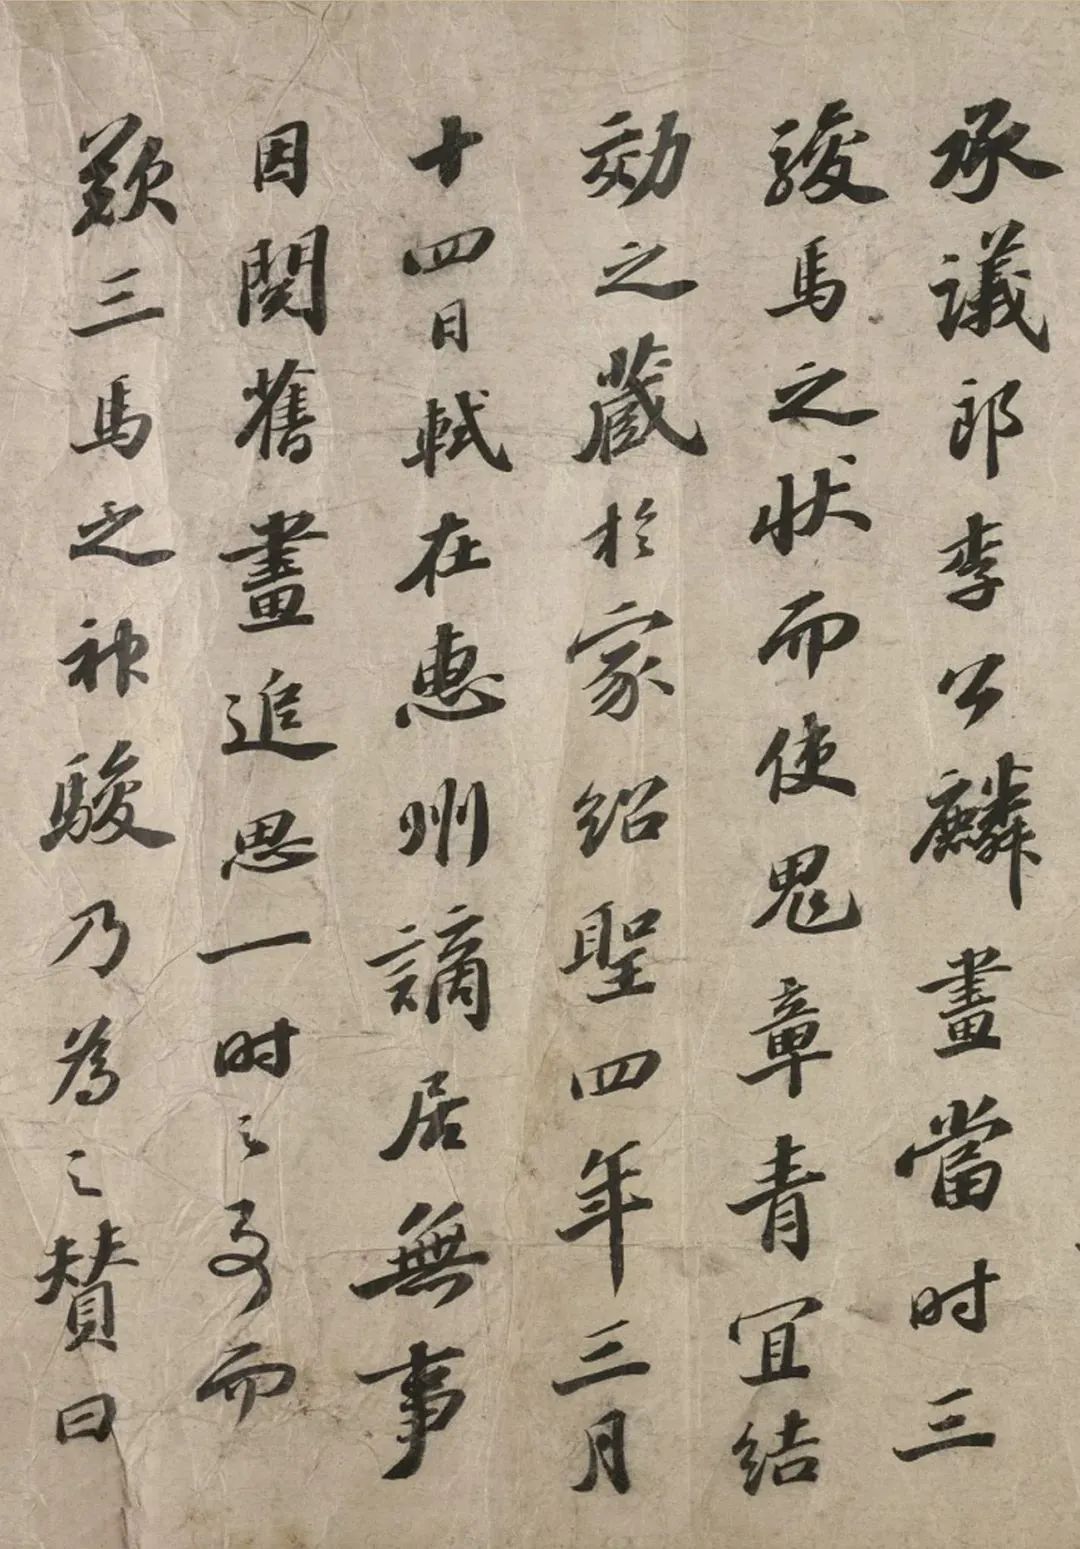 承議郎李公麟畫當时三
駿馬之状而使鬼章青宜結
効之藏於家紹聖四年三月
十四日軾在惠州謫居無事
因閱舊畫追思一时之事而
歎三馬之神駿乃為之贊曰